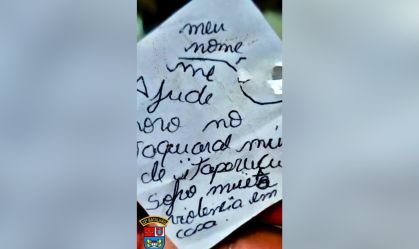 meu
nome
me
Ajude
moro no
Taquaral mu
de itaporucu
sofro muita
violencia em
casa.